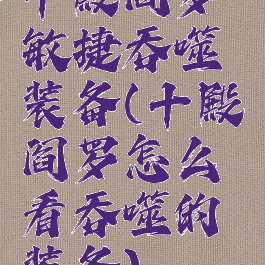 十殿阎罗
敏捷吞噬
装备(十殿
阎罗怎么
看吞噬的
装备)